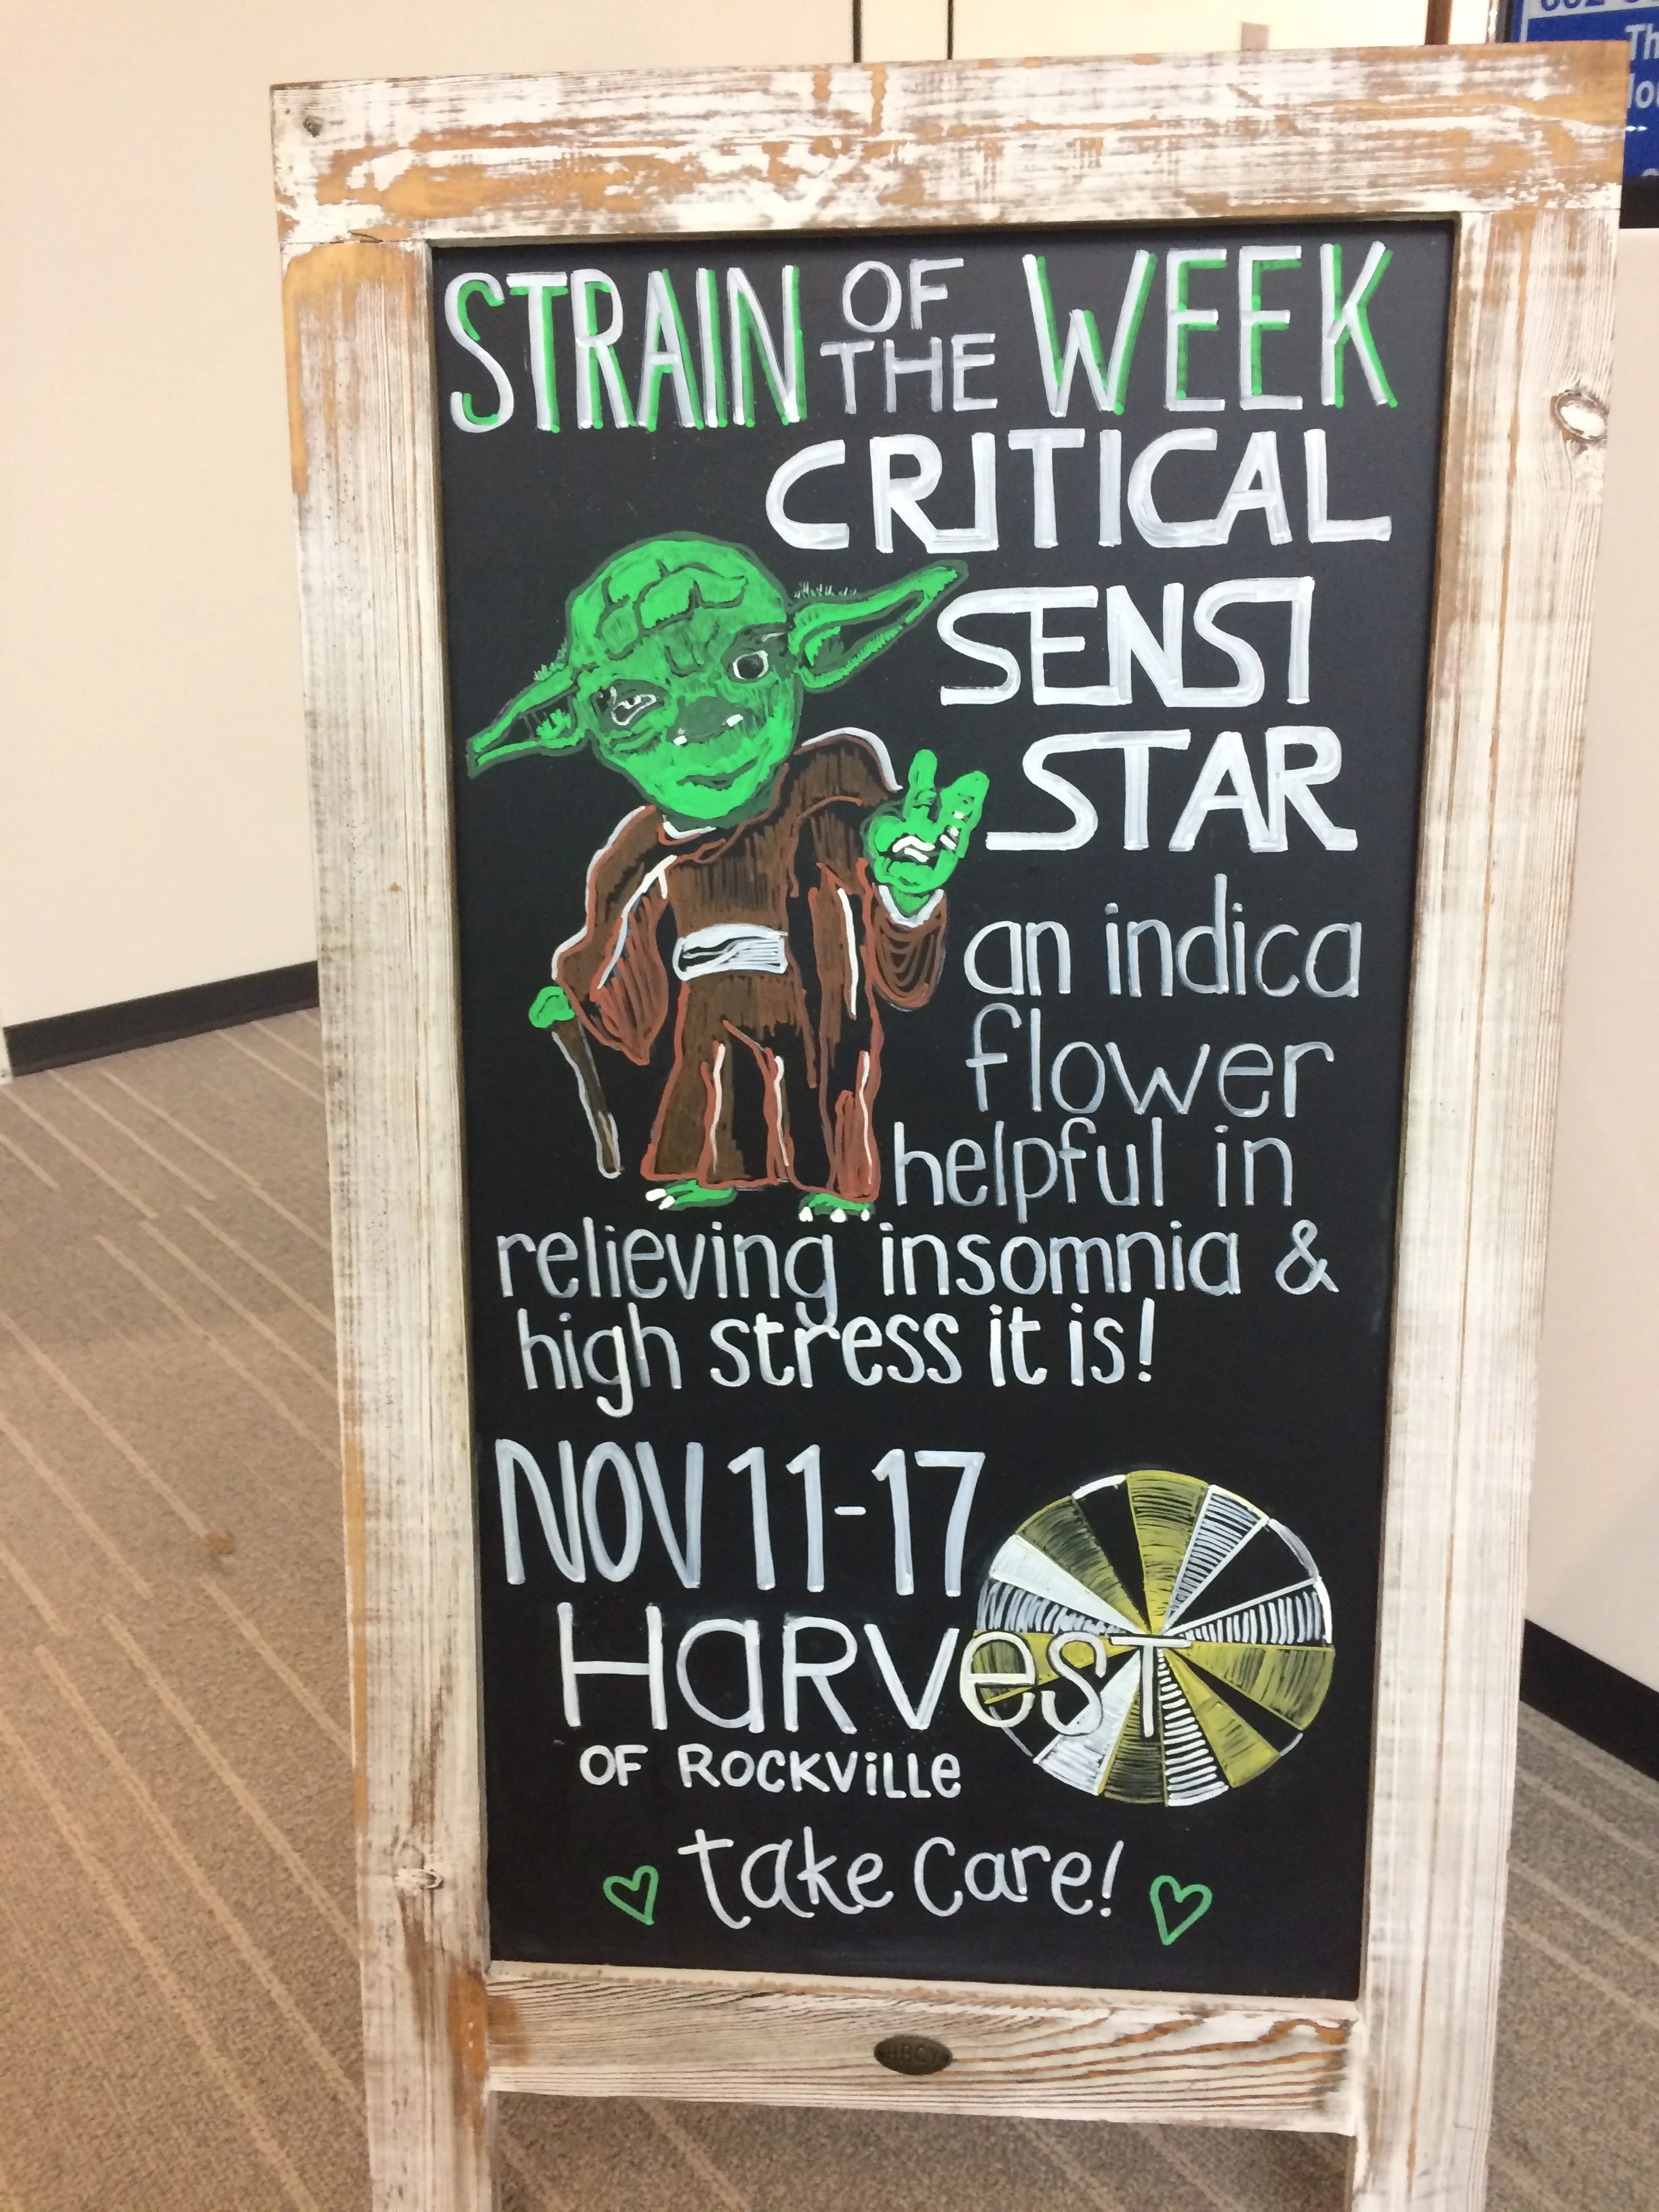 STRAIN OF THE WEEK
CRITICAL
SENSI
STAR
an indica
flower
helpful in
relieving insomnia &
high stress it is!
NOV 11-17
HARVesT
OF ROCKViLLe
take care!
HBCY
Th